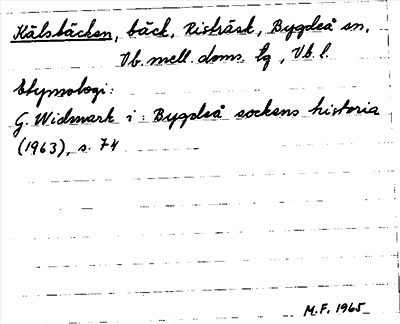 Kålsbäcken, bäck, Risträsk, Bygdeå sn,
Vb. mell. doms. tg, Vb. l.
Etymologi:
G. Widmark i: Bygdeå sockens historia
(1963), s. 74
M.F. 1965